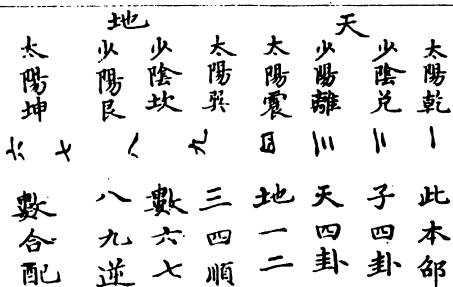 天
太陽乾一
少陰兌二
少陽離三
太陽震四
地
太陽巽九
少陰坎八
少陽艮七
太陽坤六
此本邵
子四卦
天四卦
地一二
三四順
數六七
八九逆
數合配